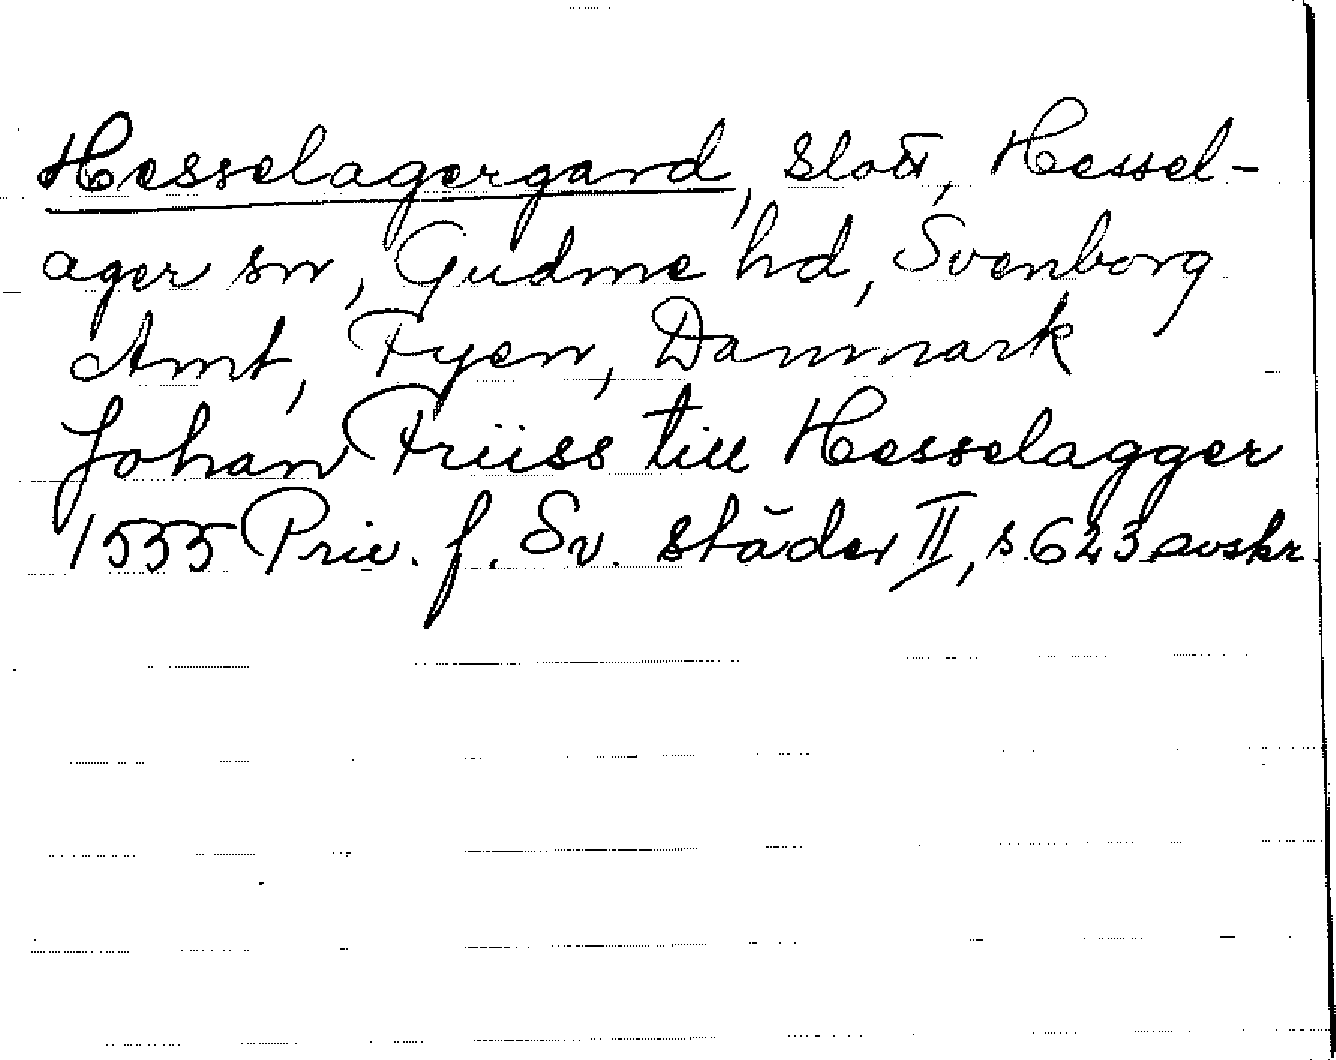 Hesselagergard, slott, Hessel-
ager sn, Gudme hd, Svenborg
Amt, Fyen, Danmark
Johan Friiss till Hesselagger
1555 Priv. f. Sv. städer II, s. 623 avskr.